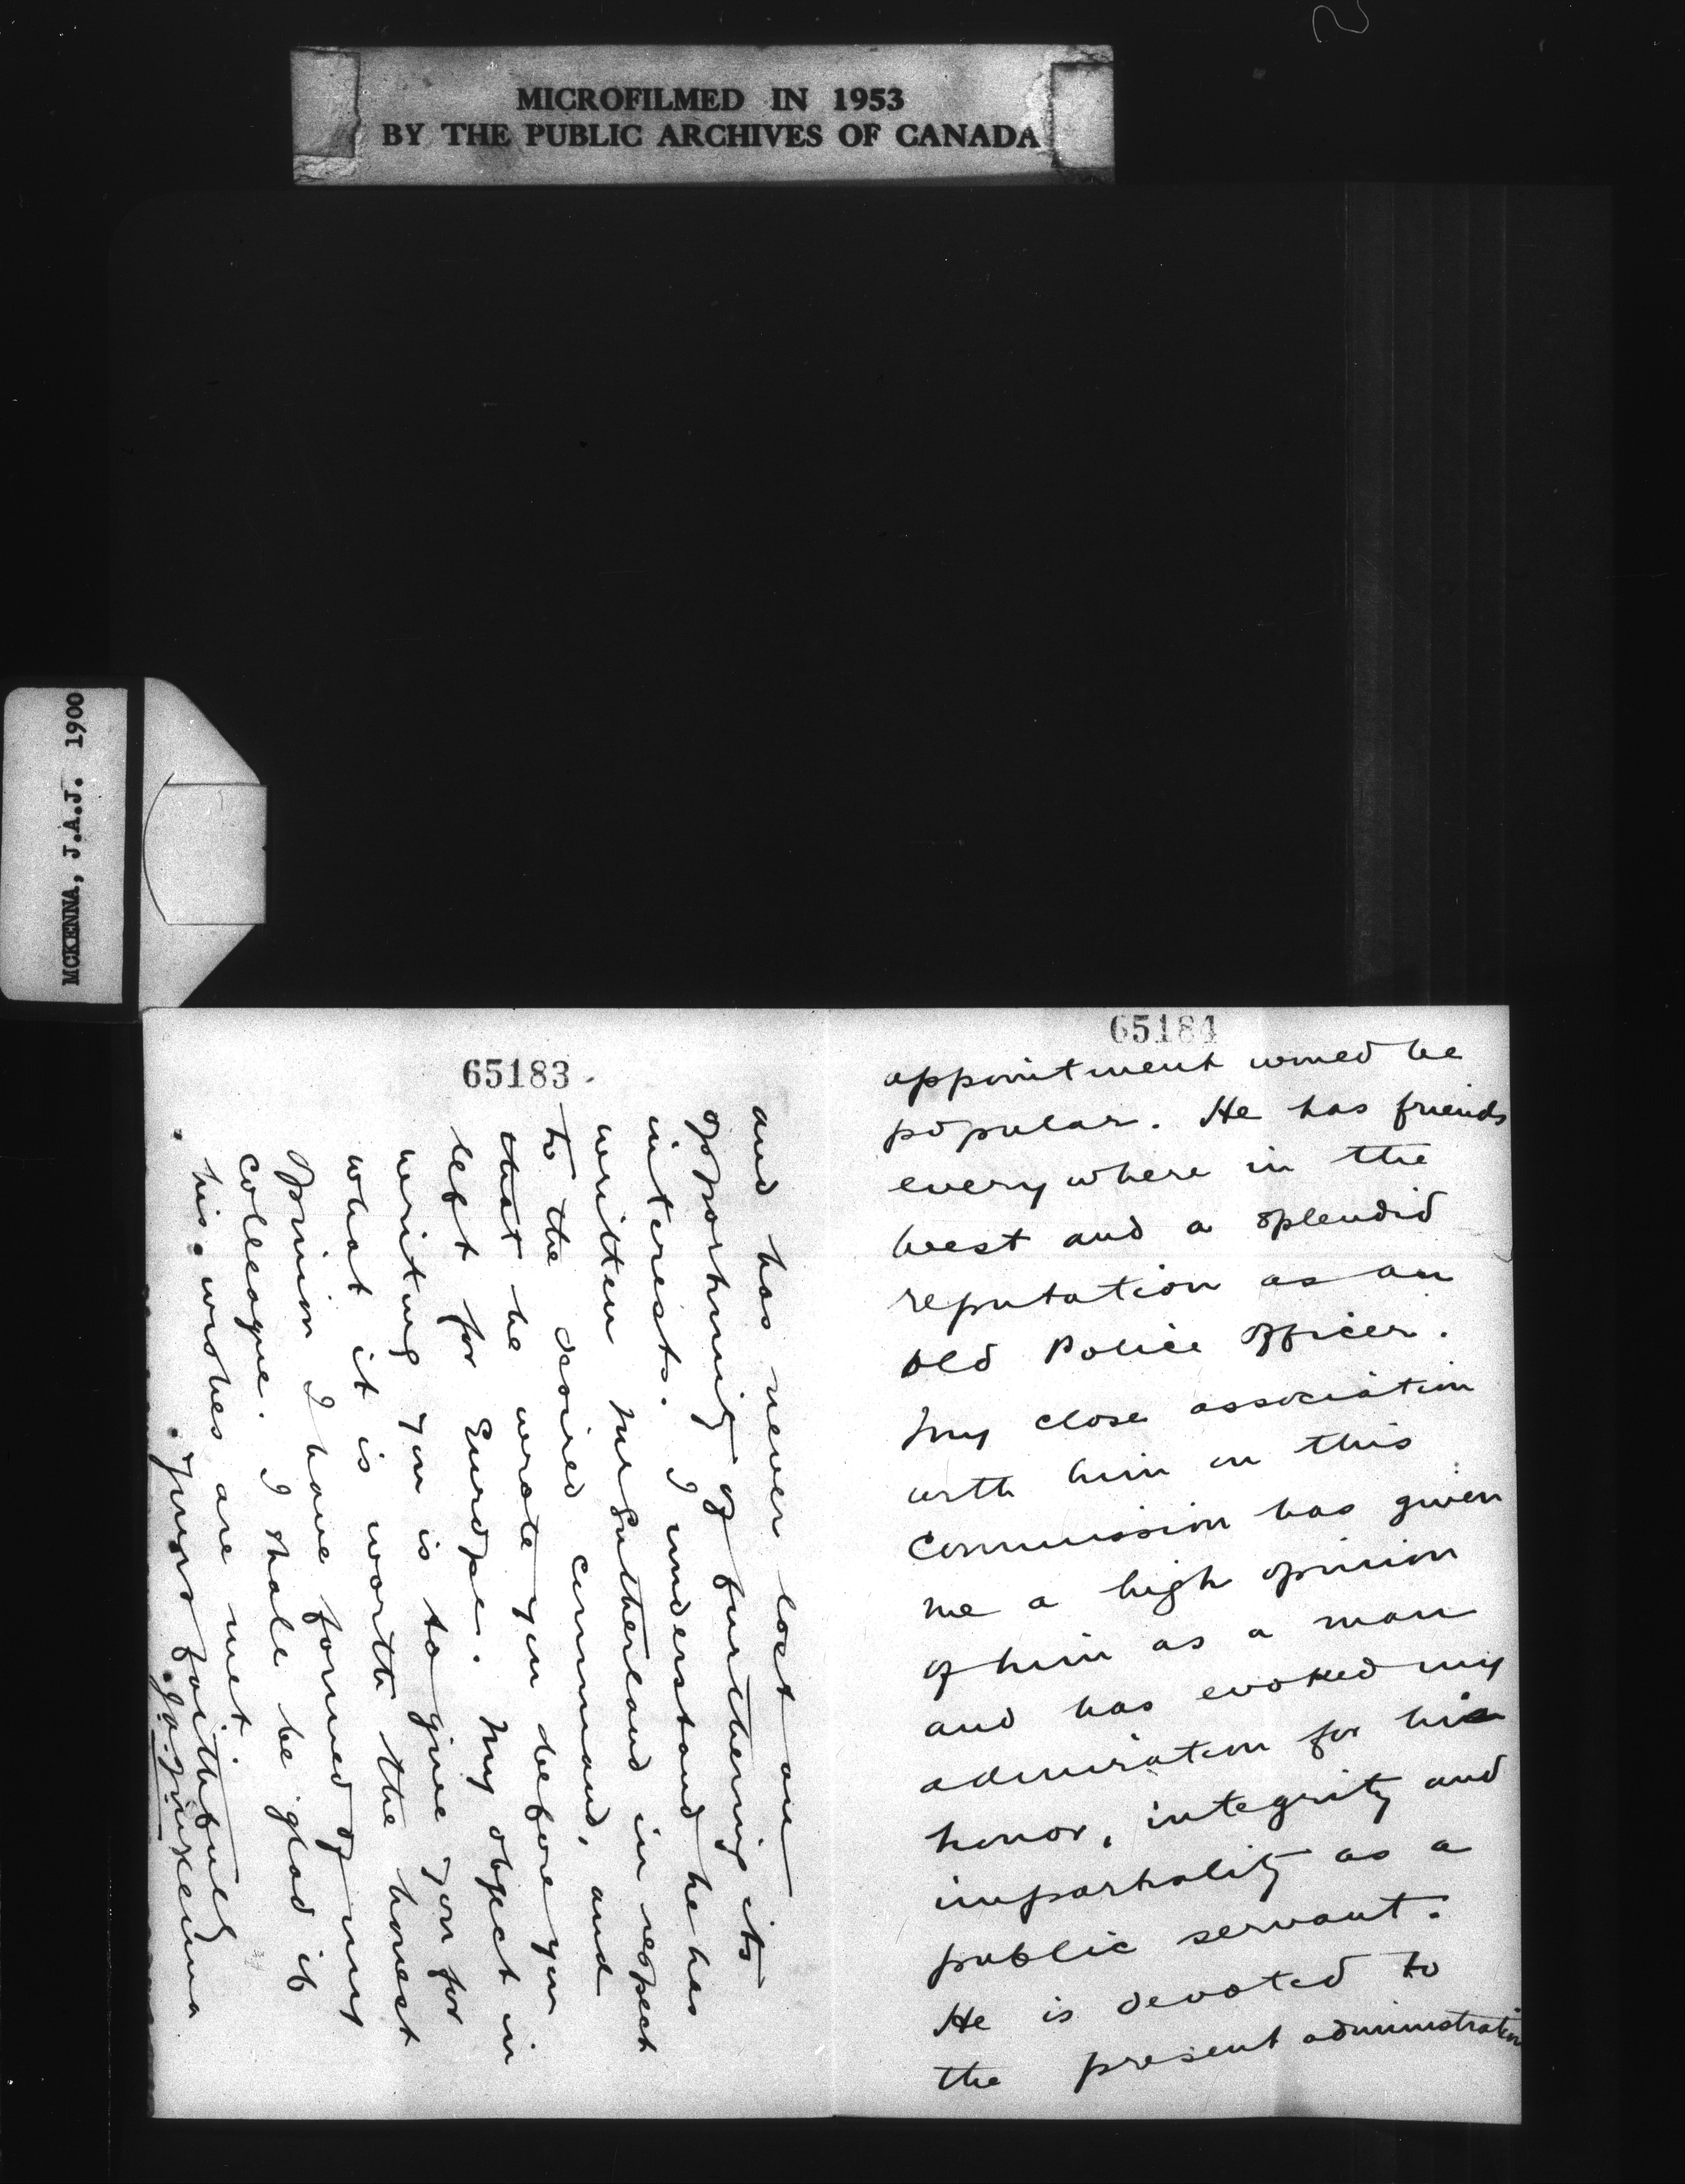 MICROFILMED IN 1953
BY THE PUBLIC ARCHIVES OF CANADA
MCKENNA, J.A.J. 1900
65184
appointment would be
popular. He has friends
everywhere in the
West and a splendid
reputation as an
old Police Officer.
My close association
with him on this
Commission has given
me a high opinion
of him as a man
and has evoked my
admiration for his
honor, integrity and
impartiality as a
public servant.
He is devoted to
the present administration
65183
and has never lost an
opportunity of furthering its
interests. I understand he has
written Mr Sutherland in respect
to the desired command, and
that he wrote you before you
left for Europe. My object in
writing you is to give you for
what it is worth the honest
opinion I have formed of my
colleague. I shall be glad if
his wishes are met.
Yours faithfully
J.A.J. McKenna